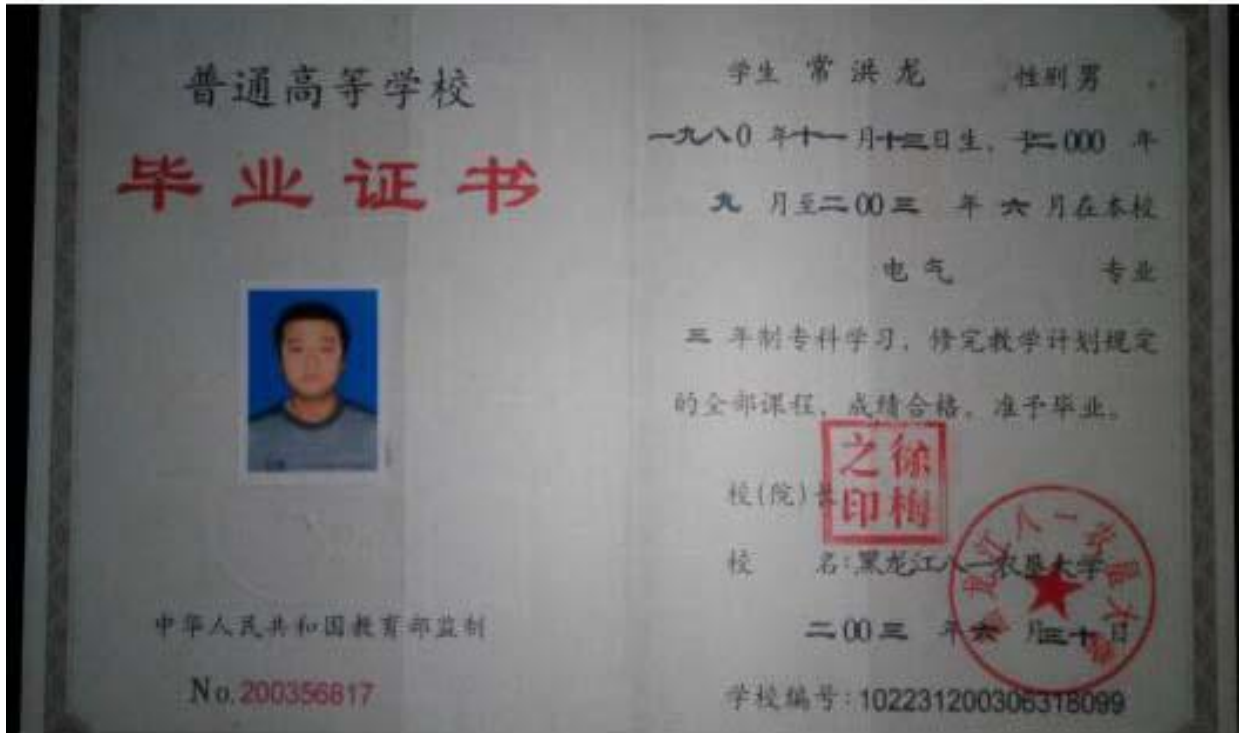 普通高等学校
毕业证书
中华人民共和国教育部监制
No.200356817
学生 常洪龙 性别男 ，
一九八0 年十一月十三日生，于二000 年
九 月至二00三 年 六 月在本校
电气 专业
三 年制专科学习，修完教学计划规定
的全部课程，成绩合格，准予毕业。
徐梅之印
校(院)长
校 名:黑龙江八一农垦大学
黑龙江八一农垦大学
二00三 年六 月三十日
学校编号:102231200306318099